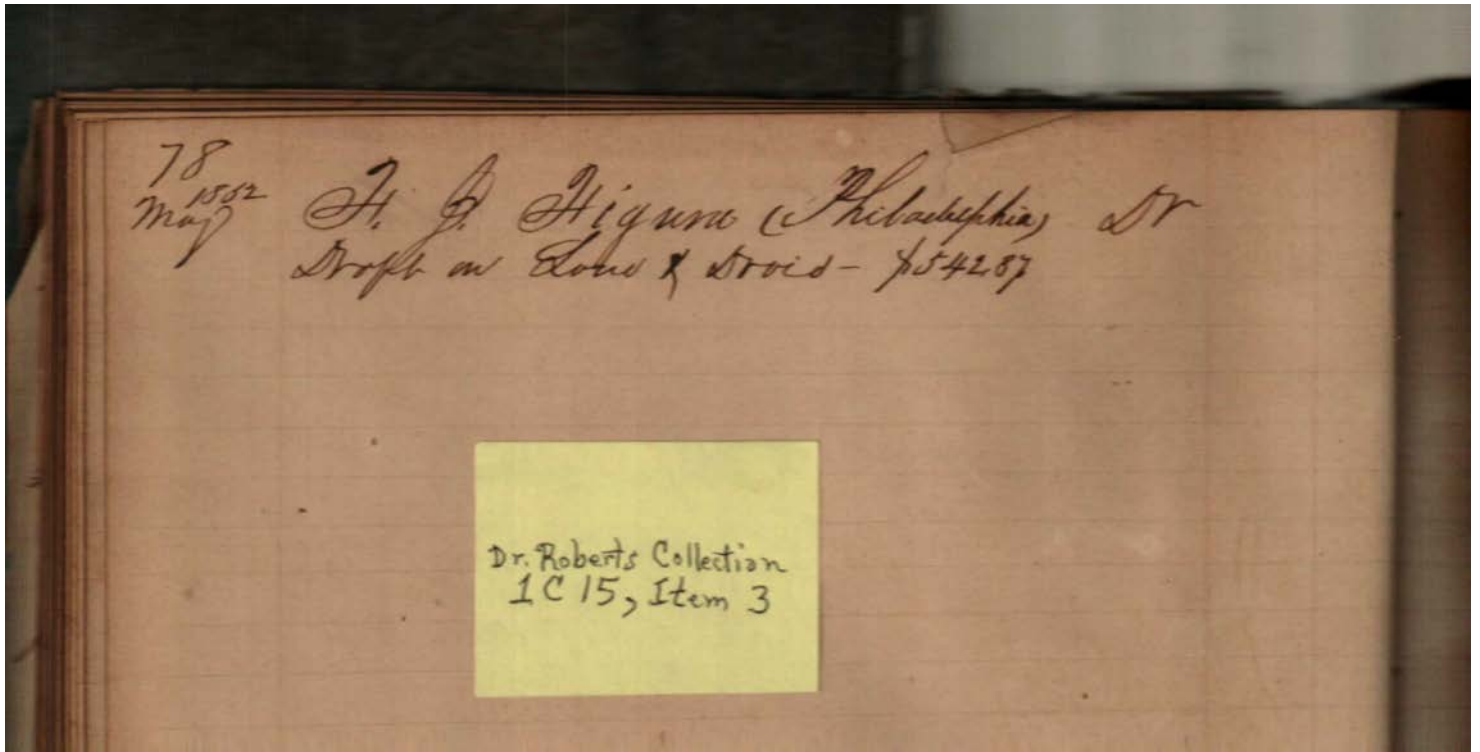 78
1852
May H. J. Higune (Philadelphia) Dr
Draft on Lone & Droid - $542.87
Dr. Roberts Collection
1 C 15, Item 3